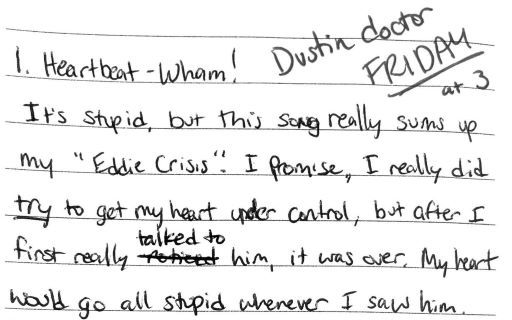 1. Heartbeat - Wham!
Dustin doctor
FRIDAY
at 3
It's stupid, but this song really sums up
my "Eddie Crisis". I promise, I really did
try to get my heart under control, but after I
talked to
first really noticed him, it was over. My heart
would go all stupid whenever I saw him.